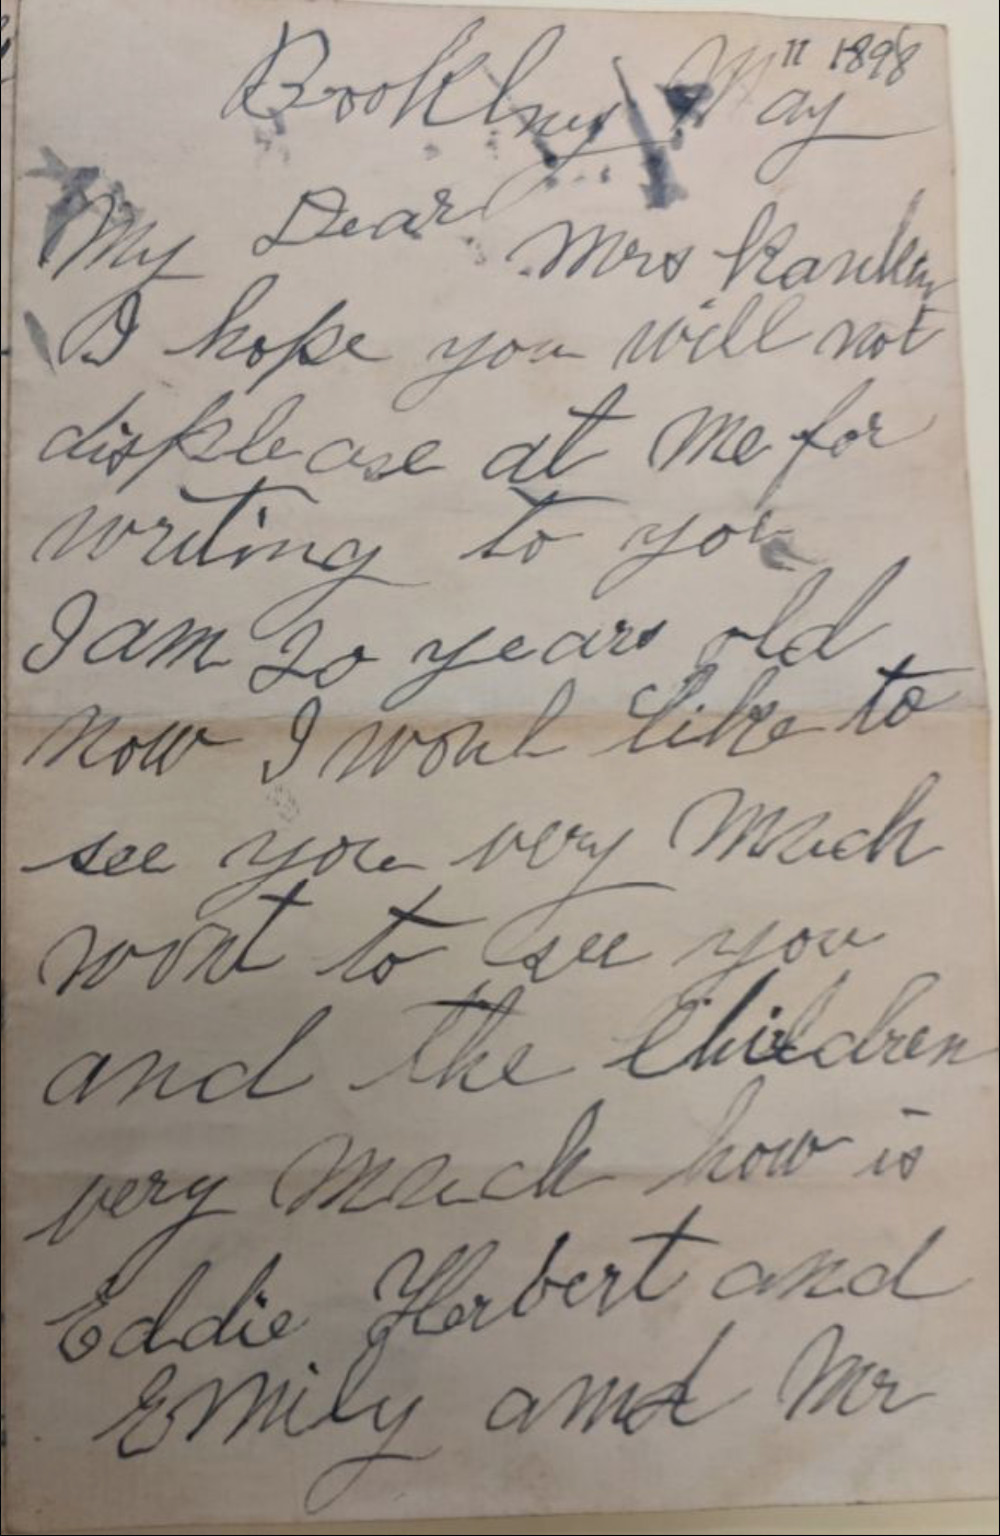 Booklny May 11 1898
My Dear Mrs Rankin
I hope you will not
displease at me for
writing to you
I am 20 years old
now I woul like to
see you very much
wont to see you
and the Children
very much how is
Eddie Herbert and
Emily amd Mr